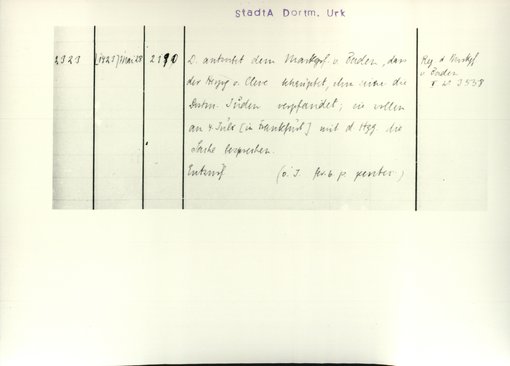 StadtA Dortm. Urk
2323 [1425] Mai 28 2190 D. antwortet dem Markgf. v. Baden, dass Reg. d. Markgf.
der Herzog v. Cleve behauptet, ihm seien die v. Baden
Dortm. Juden verpfändet; sie wollen 3538
an 4 Juli [in Frankfurt] mit d. Hzg. die
Sache besprechen.
Entwurf (o. J. fer. 6 p. pentec.)